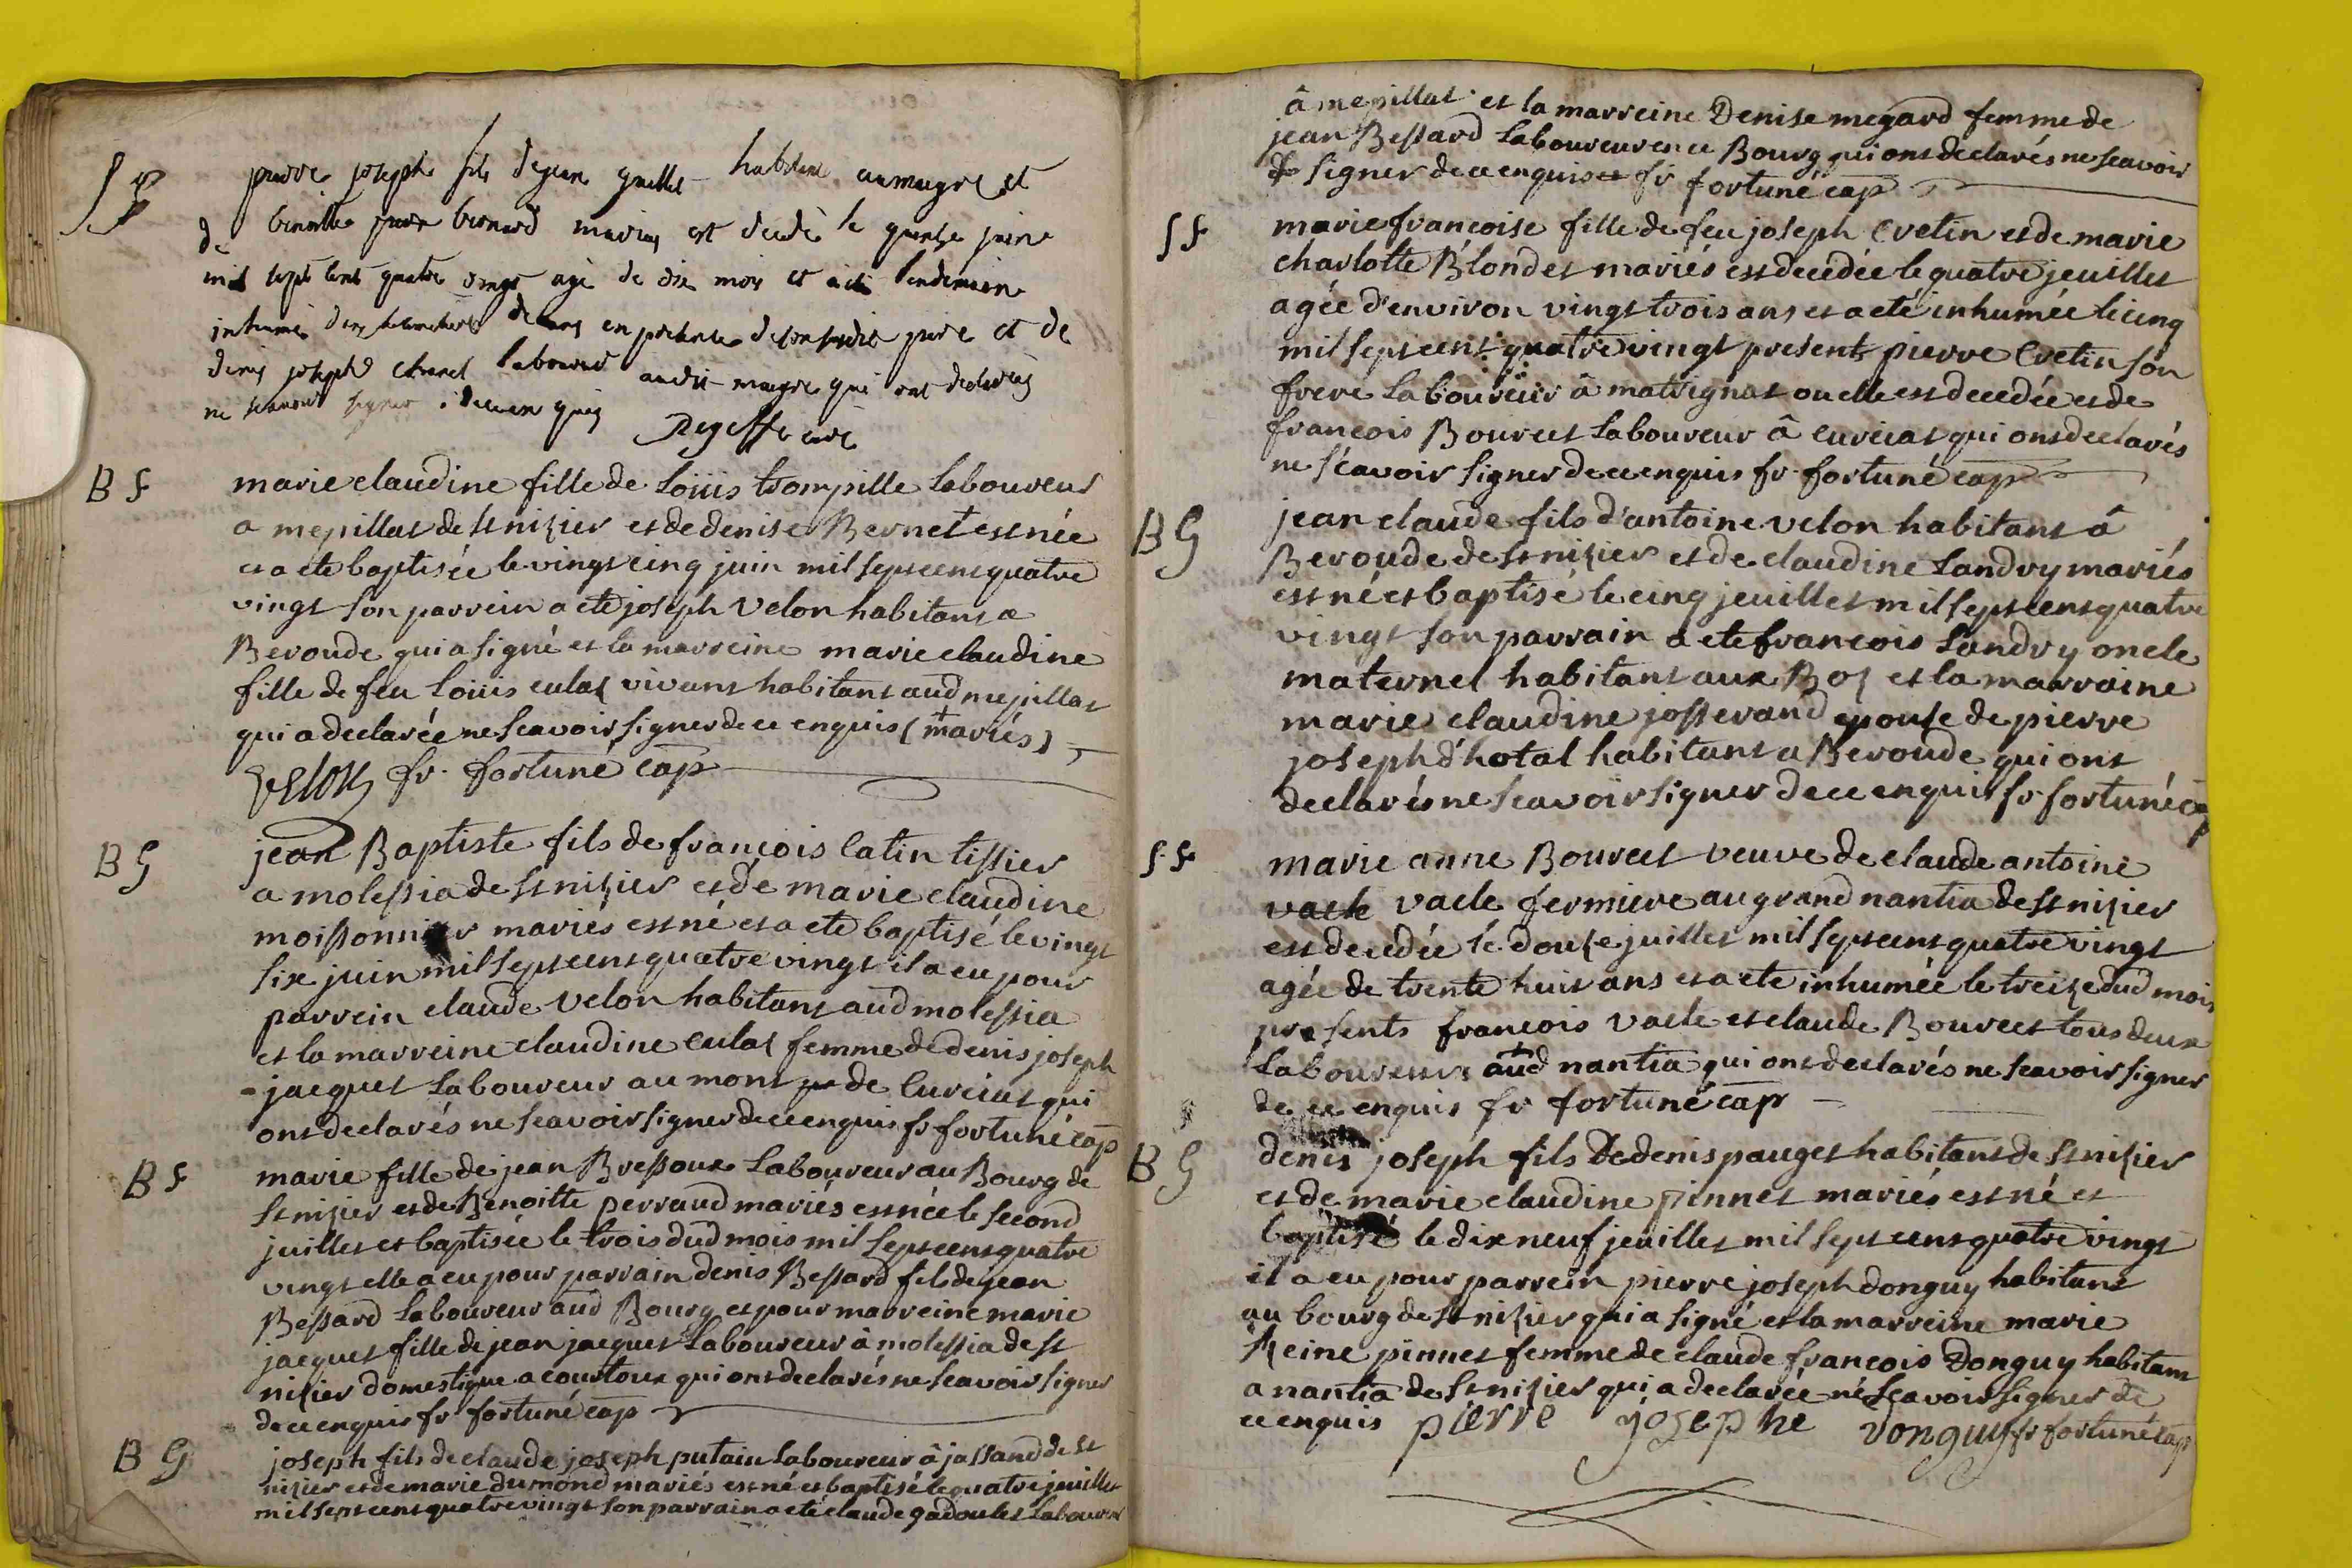 SG
pierre joseph fils de jean guillet habitant au maigre et
de benoitte bernard mariés est decedé le quinze juin
mil sept cent quatre vingt agé de dix mois et a eté lendemain
inhumé dans le cimetiere en presence de son susdit pere et de
denis joseph laboureur audit maigre qui ont declarés
ne scavoir signer de ce enquis
curé
B f
marie claudine fille de Loüis trompille Laboureur
a mepillat de st nizier et de denise Bernet + est née
et a ete baptisée le vingt cinq juin mil sept cent quatre
vingt son parrein a ete joseph velon habitant a
Beroude qui a signé et la marreine marie claudine
fille de feu Loüis culas vivant habitant aud mepillat
qui a declarée ne Scavoir signer de ce enquis ( + mariés )
velon fr. fortuné cap
B G
jean Baptiste fils de françois catin tissier
a molessia de st nizier et de marie claudine
moissonnier mariés est né et a ete baptisé le vingt
six juin mil sept cent quatre vingt il a eu pour
parrein claude velon habitant aud molessia
et la marreine claudine culas femme de denis joseph
jacquet Laboureur au mont de curciat qui
ont declarés ne scavoir signer de ce enquis fr fortuné cap
B f
marie fille de jean Bressoux Laboureur au Bourg de
st nizier et de Benoitte perraud mariés est née le second
juillet et baptisée le trois dud mois mil sept cent quatre
vingt elle a eu pour parrain denis Bessard fils de jean
Bessard Laboureur aud Bourg et pour marreine marie
jacquet fille de jean jacquet Laboureur à molessia de st
nizier domestique a courtoux qui ont declarés ne scavoir signer
de ce enquis fr fortuné cap
B G
joseph fils de claude joseph putain Laboureur à jassand de st
nizier et de marie dumond mariés est né et baptisé le quatre jeuillet
mil sept cent quatre vingt son parrain a eté claude gadoulet Laboureur
â mepillat et la marreine Denise megard femme de
jean Bessard Laboureur en ce Bourg qui ont declarés ne scavoir
signer de ce enquis fr fortuné cap
S f
marie francoise fille de feu joseph Cvetin et de marie
charlotte Blondet mariés est decedée le quatre jeuillet
agée d'environ vingt trois ans et a eté inhumée le cinq
mil sept cent quatre vingt presents pierre Cvetin son
frere Laboureur â matrignat ou elle est decedée et de
francois Bourcet Laboureur â curciat qui ont declarés
ne sçavoir signer de ce enquis fr. fortuné cap
B G
jean claude fils d'antoine velon habitant â
Beroude de st nizier et de claudine Landry mariés
est né et baptisé le cinq jeuillet mil sept cent quatre
vingt son parrain a ete francois Landry oncle
maternel habitant aux Bos et la marraine
marie claudine josserand epouse de pierre
joseph d'hotal habitant a Beroude qui ont
declarés ne scavoir signer de ce enquis fr. fortuné cap
S f
marie anne Bourcet veuve de claude antoine
vacle vacle fermiere au grand nantia de st nizier
est decedée le douze juillet mil sept cent quatre vingt
agée de trente huit ans et a ete inhumée le treize dud mois
presents francois vacle et claude Bourcet tous deux
Laboureurs aud nantia qui ont declarés ne scavoir signer
de ce enquis fr fortuné cap
B G
denis joseph fils de denis pauget habitant de st nizier
et de marie claudine pinnet mariés est né et
baptisé le dix neuf jeuillet mil sept cent quatre vingt
il a eu pour parrein pierre joseph donguy habitant
au bourg de st nizier qui a signé et la marreine marie
Reine pinnet femme de claude francois Donguy habitant
a nantia de st nizier qui a declarée ne scavoir signer de
ce enquis pierre josephe donguy fr fortuné cap